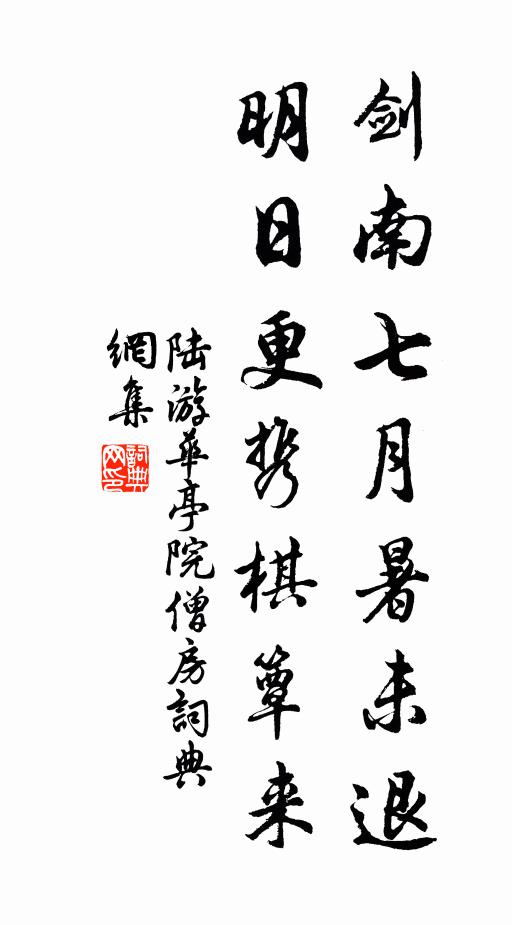 剑南七月暑未退
明日更携棋簟来
陆游华亭院僧房詞典
網集
詞典網印